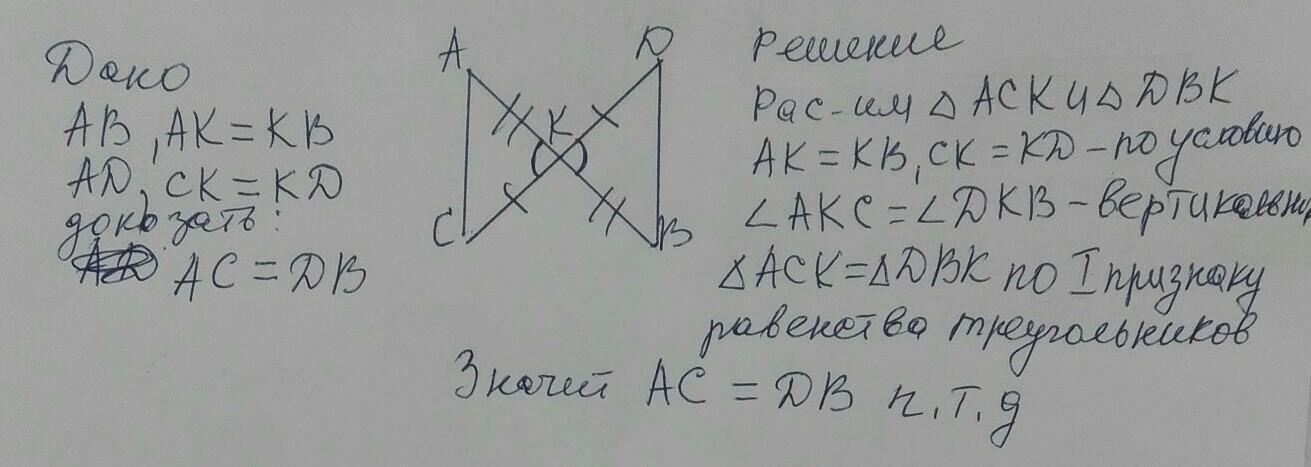 Дано
AB, AK = KB
AD, CK = KD
доказать:
AC = DB
A
D
K
C
B
Решение
Рас-им △ ACK и △ DBK
AK = KB, CK = KD – по условию
∠AKC = ∠DKB – вертикальны
△ACK = △DBK по I признаку
равенства треугольников
Значит AC = DB ч.т.д